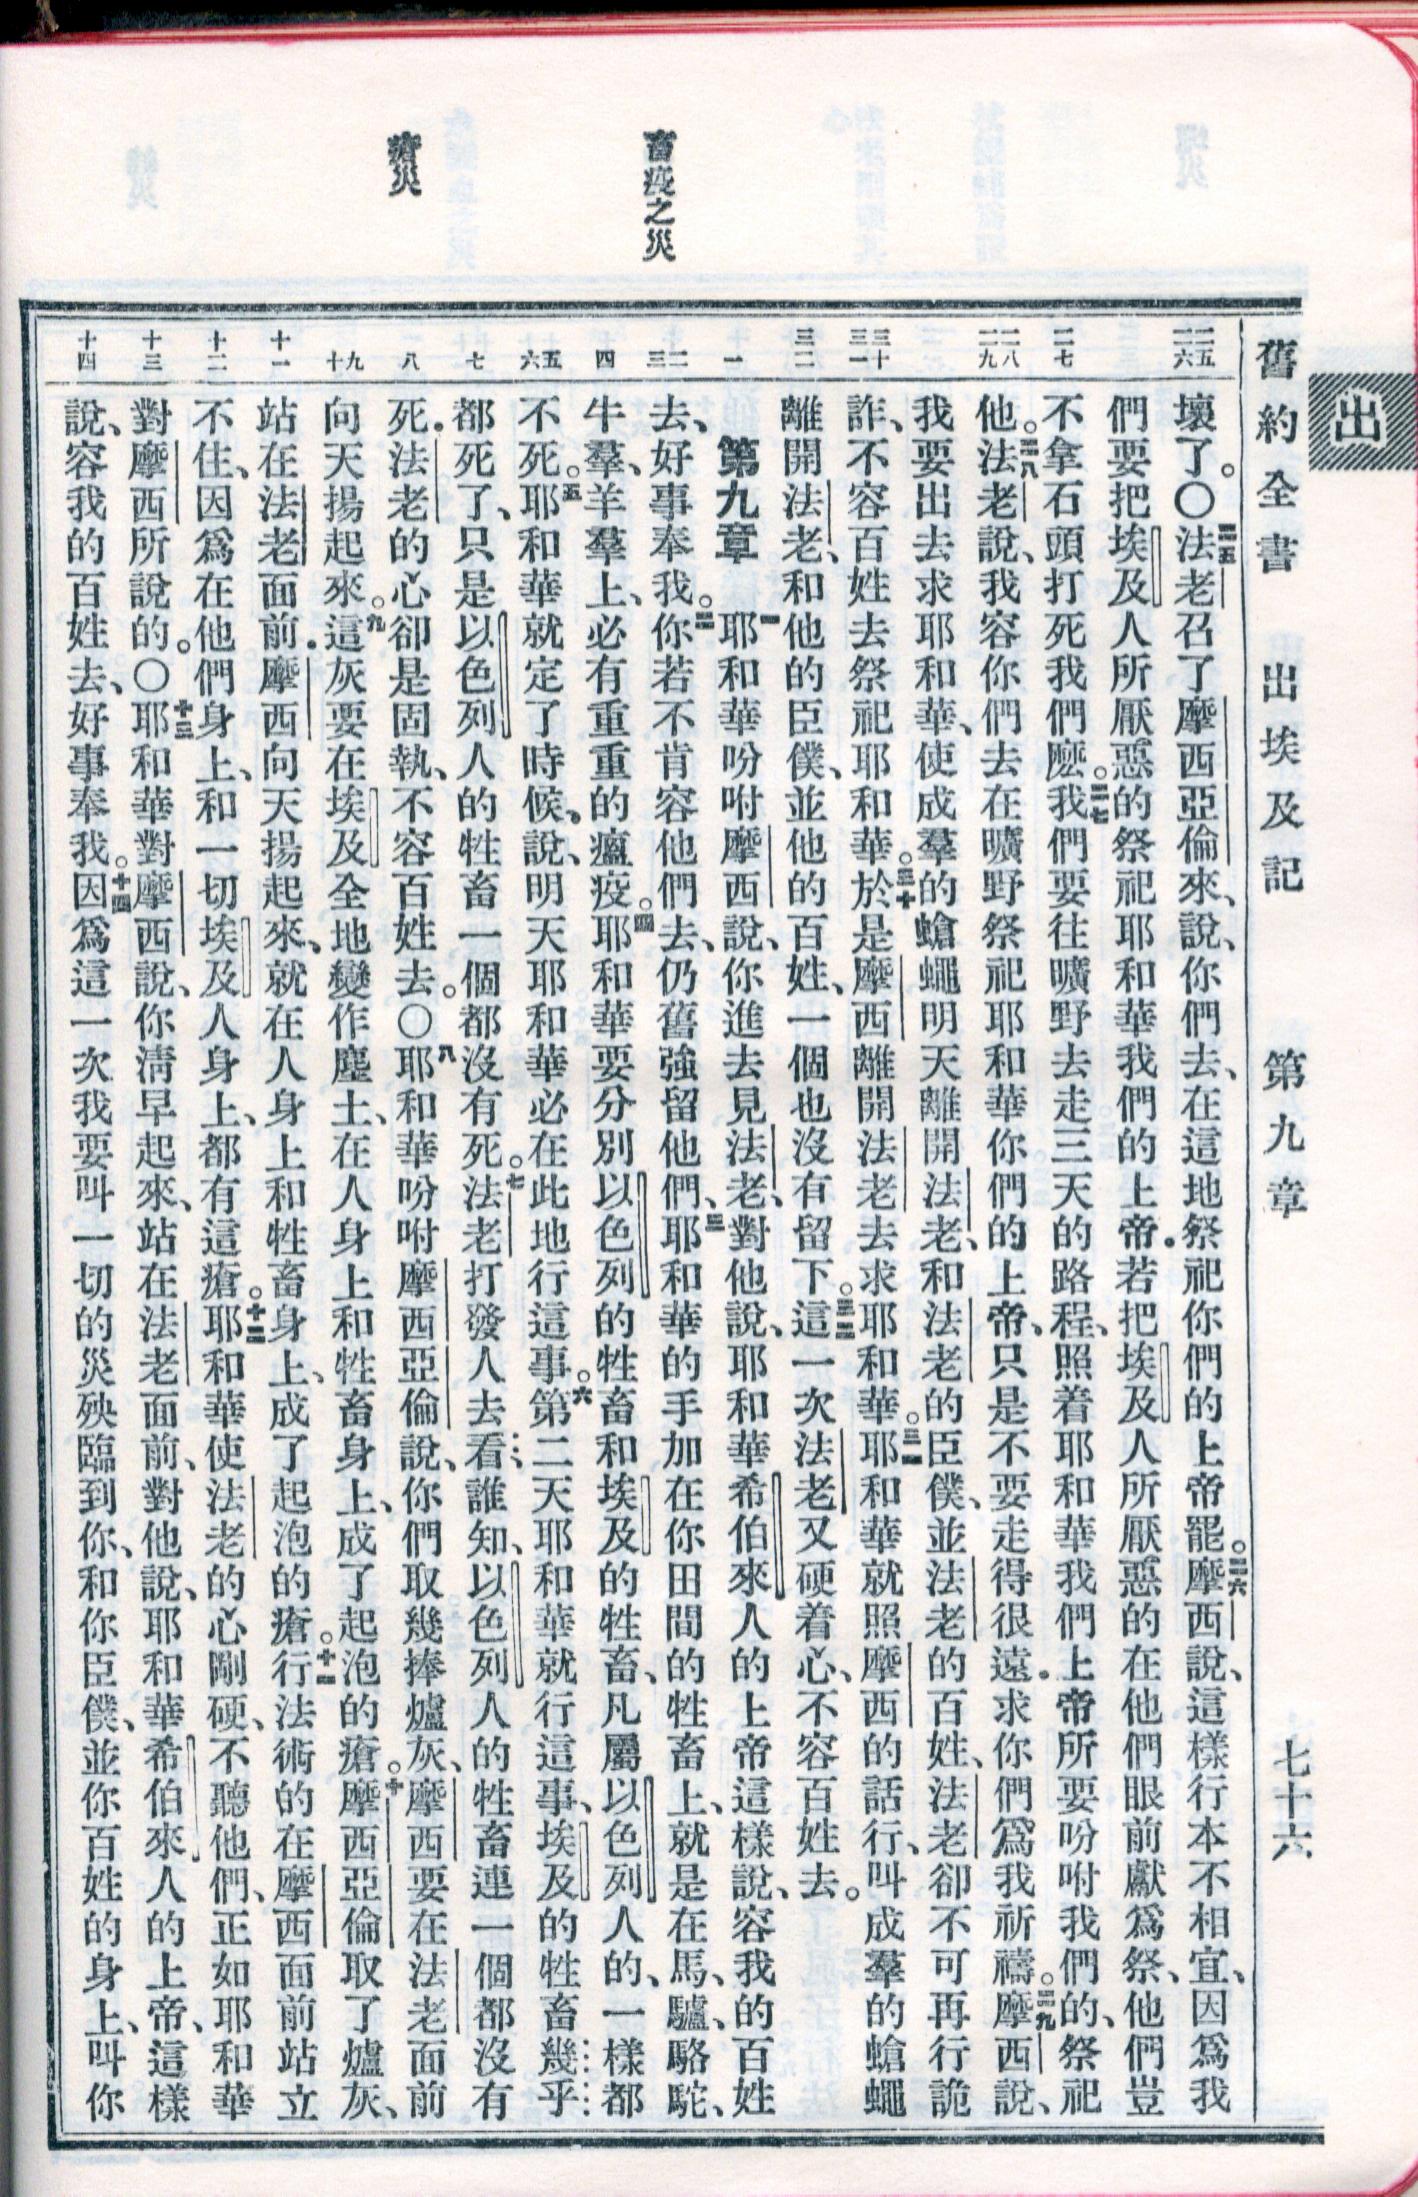 出
舊約全書 出埃及記 第九章 七十六
畜疫之災
瘡災
二五 二六
二七
二八 二九
三十 三一
三二
一
二 三
四
五 六
七
八
九 十
十一
十二
十三
十四
壞了。〇二五法老召了摩西亞倫來、說、你們去、在這地祭祀你們的上帝罷。二六摩西說、這樣行本不相宜、因爲我
們要把埃及人所厭惡的祭祀耶和華我們的上帝．若把埃及人所厭惡的在他們眼前獻爲祭、他們豈
不拿石頭打死我們麽。二七我們要往曠野去走三天的路程、照着耶和華我們上帝所要吩咐我們的、祭祀
他。二八法老說、我容你們去在曠野祭祀耶和華你們的上帝、只是不要走得很遠．求你們爲我祈禱。二九摩西說、
我要出去求耶和華、使成羣的蠅蠅明天離開法老、和法老的臣僕、並法老的百姓、法老卻不可再行詭
詐、不容百姓去祭祀耶和華。三十於是摩西離開法老去求耶和華。三一耶和華就照摩西的話行、叫成羣的蒼蠅
離開法老、和他的臣僕、並他的百姓、一個也沒有留下。三二這一次法老又硬着心、不容百姓去。
第九章 一耶和華吩咐摩西說、你進去見法老、對他說、耶和華希伯來人的上帝這樣說、容我的百姓
去、好事奉我。二你若不肯容他們去、仍舊強留他們、三耶和華的手加在你田間的牲畜上、就是在馬、驢、駱駝、
牛羣、羊羣、上、必有重重的瘟疫。四耶和華要分別以色列的牲畜和埃及的牲畜、凡屬以色列人的、一樣都
不死。五耶和華就定了時候、說、明天耶和華必在此地行這事。六第二天耶和華就行這事、埃及的牲畜幾乎
都死了、只是以色列人的牲畜一個都沒有死。七法老打發人去看誰知、以色列人的牲畜連一個都沒有
死．法老的心卻是固執、不容百姓去。〇八耶和華吩咐摩西亞倫說、你們取幾捧爐灰、摩西要在法老面前
向天揚起來。九這灰要在埃及全地變作塵土、在人身上和牲畜身上、成了起泡的瘡。十摩西亞倫取了爐灰、
站在法老面前．摩西向天揚起來、就在人身上和牲畜身上、成了起泡的瘡。十一行法術的在摩西面前站立
不住、因爲在他們身上、和一切埃及人身上、都有這瘡。十二耶和華使法老的心剛硬、不聽他們、正如耶和華
對摩西所說的。〇十三耶和華對摩西說、你清早起來、站在法老面前、對他說、耶和華希伯來人的上帝、這樣
說、容我的百姓去、好事奉我。十四因爲這一次我要叫一切的災殃臨到你、和你臣僕、並你百姓的身上、叫你